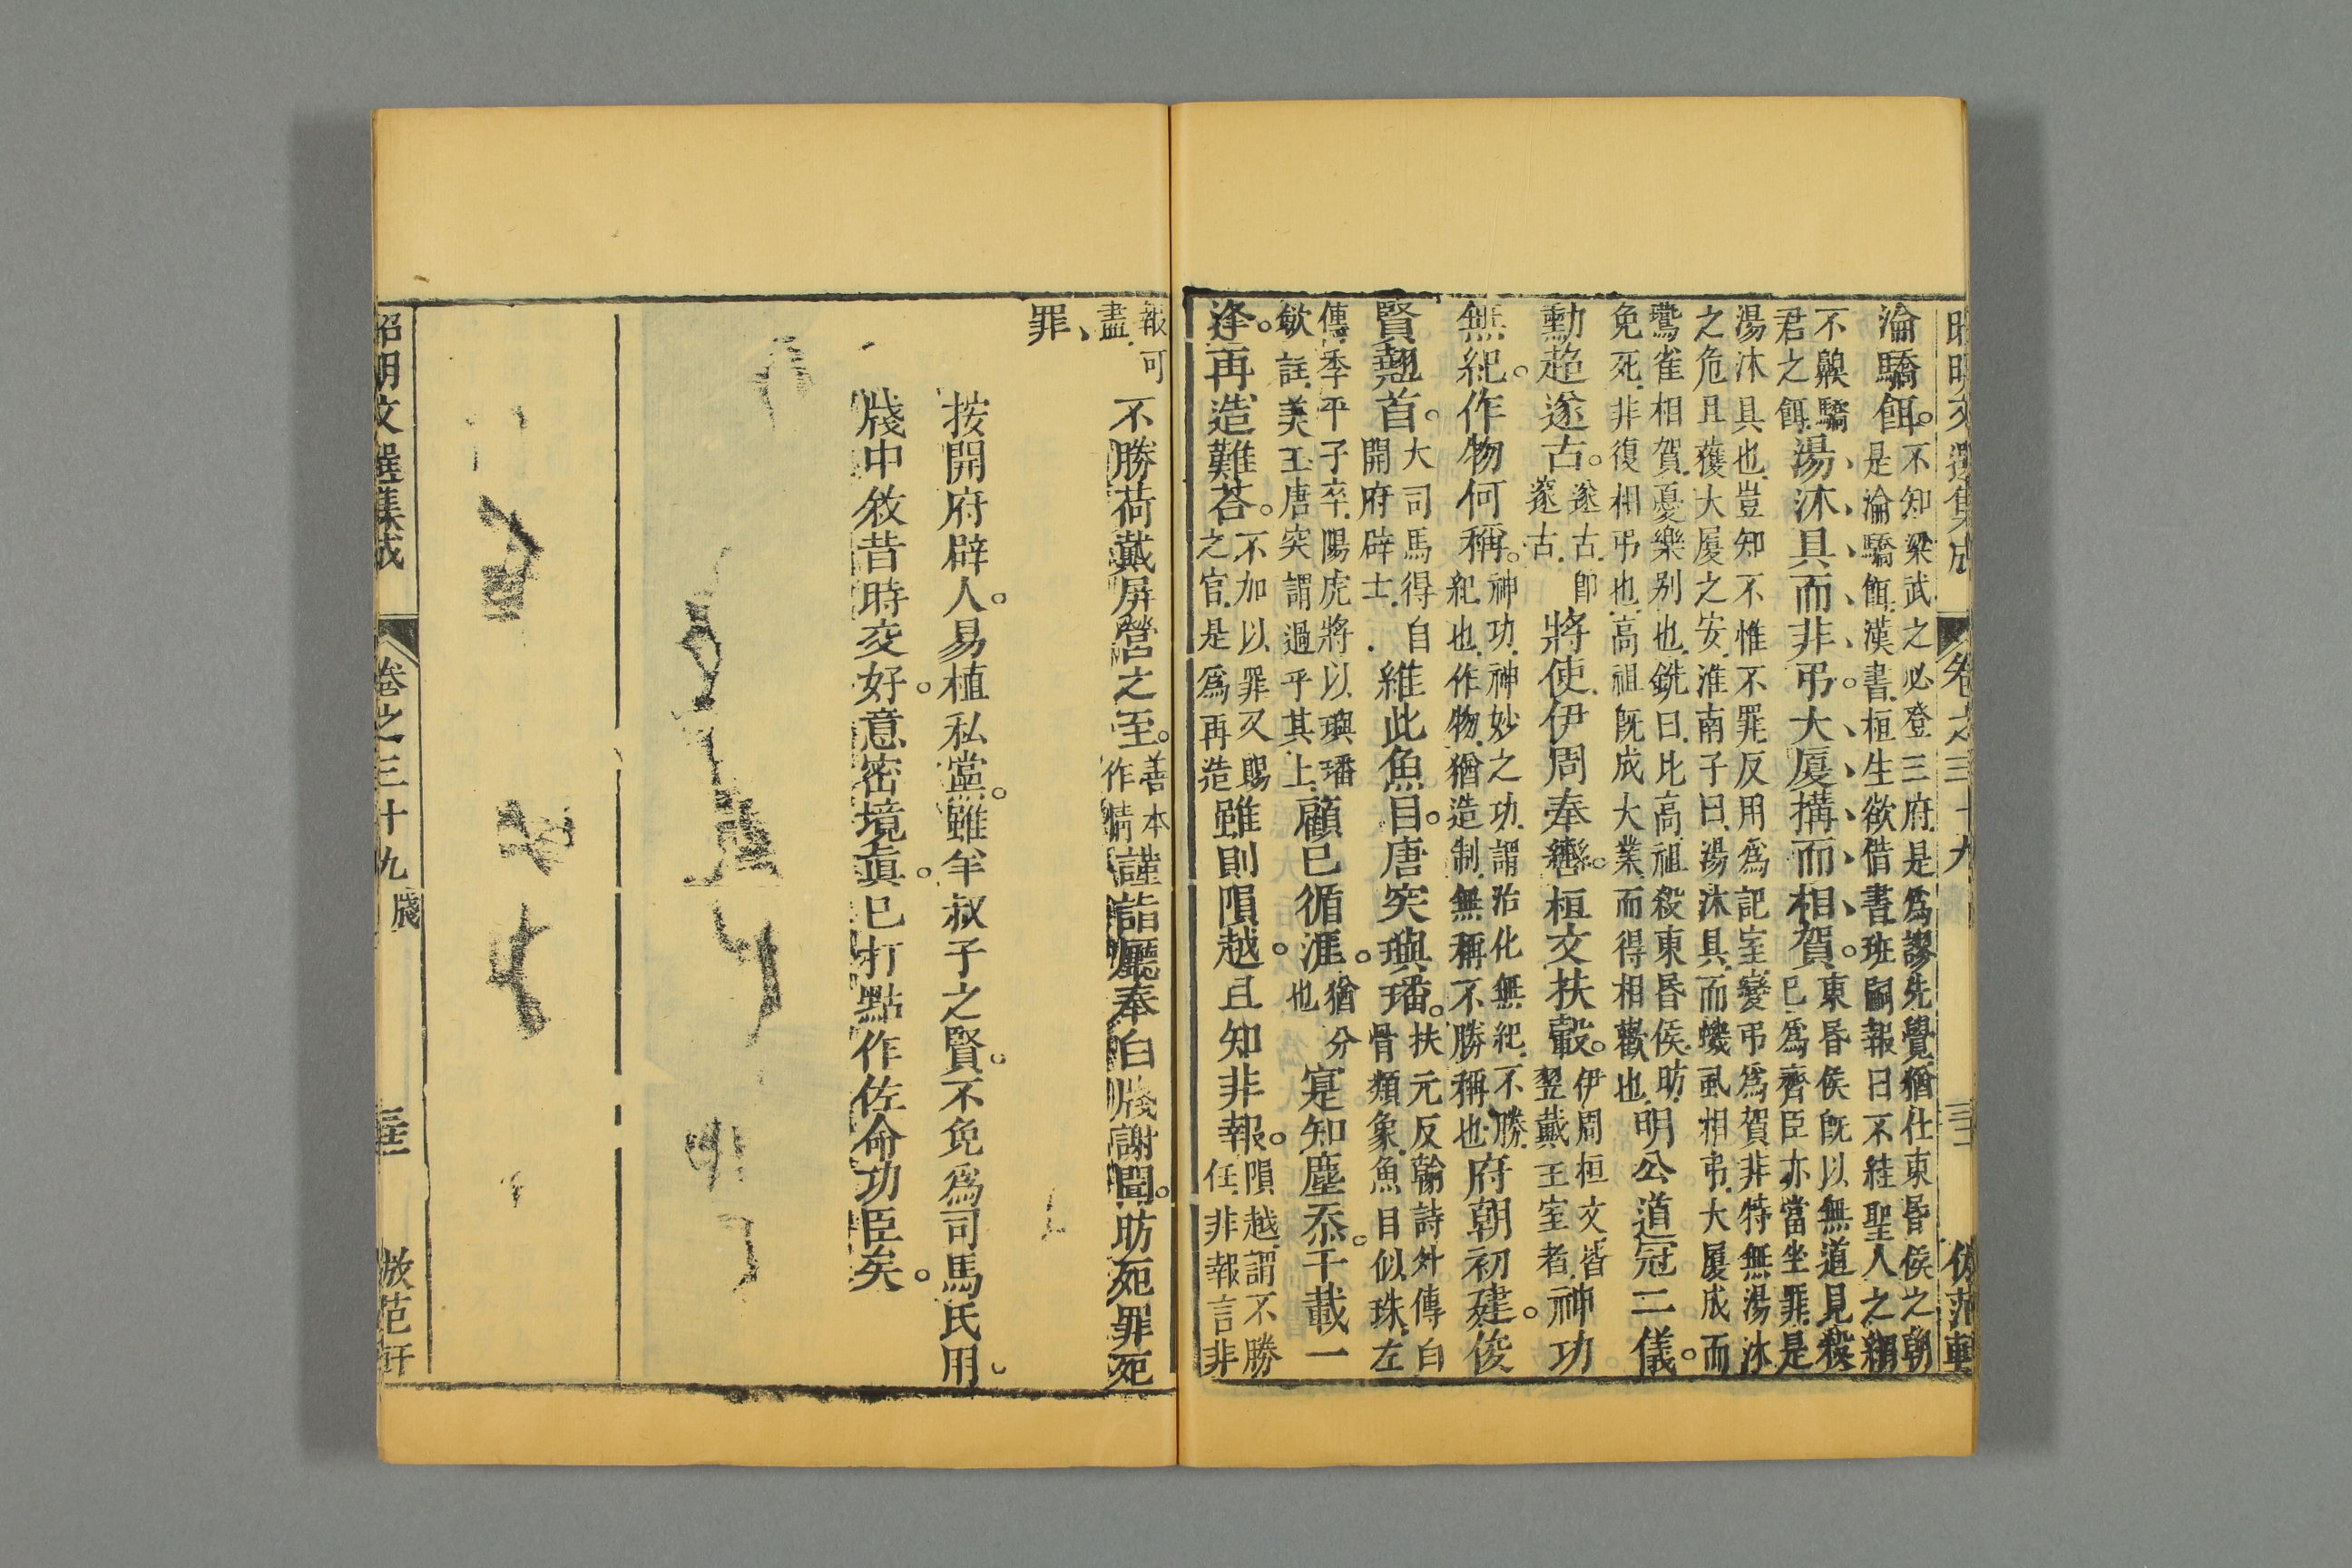 昭明文選集成　卷之三十九　三十二　倣范軒
淪驕餌。不知梁武之必登三府是爲謬先覺猶仕東昏侯之朝
是淪驕餌漢書桓生欲借書班嗣報曰不絓聖人之網
不齅驕
君之餌湯沐具而非弔。大厦搆而相賀。東昏侯旣以無道見殺
已爲齊臣亦當坐罪是
湯沐具也豈知不惟不罪反用爲記室變弔爲賀非特無湯沐
之危且獲大厦之安淮南子曰湯沐具而蟣虱相弔大厦成而
鷰雀相賀憂樂别也銑曰比高祖殺東昏侯昉
免死非復相弔也高祖旣成大業而得相歡也明公道冠二儀。
勳超遂古。遂古卽
邃古將使伊周奉轡。桓文扶轂。伊周桓文皆
翌戴王室者神功
無紀。作物何稱。神功神妙之功謂治化無紀不勝
紀也作物猶造制無稱不勝稱也府朝初建。俊
賢翹首。大司馬得自
開府辟士維此魚目。唐突璵璠。扶元反翰詩外傳白
骨類象魚目似珠左
傳季平子卒陽虎將以璵璠
歛註美玉唐突謂過乎其上顧已循涯。猶分
也寔知塵忝。千載一
逢。再造難荅。不加以罪又賜
之官是爲再造雖則隕越。且知非報。隕越謂不勝
任非報言非
報可
盡不勝荷戴屏營之至。善本
作情謹詣廳奉白牋謝聞。昉死罪死
罪、
按開府辟人。易植私黨。雖羊叔子之賢。不免爲司馬氏用。
牋中敘昔時交好。意密境眞。已打點作佐命功臣矣。
昭明文選集成　卷之三十九　牋　三十三　倣范軒